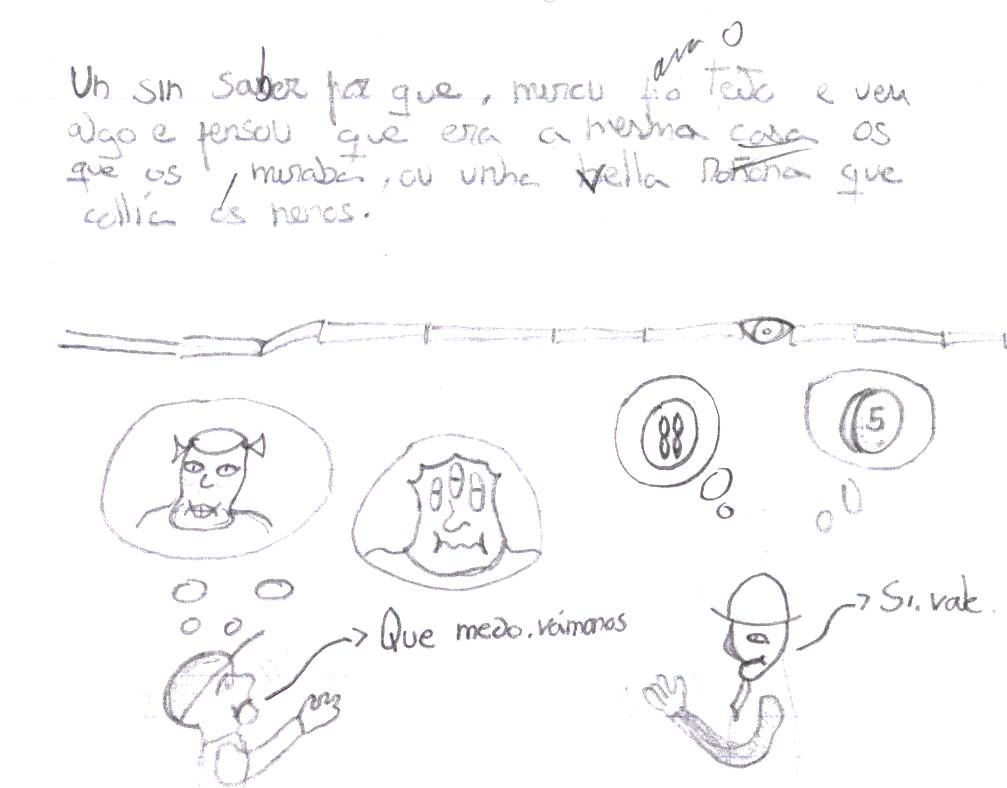 Un sin saber por que, mirou para o teito e veu
algo e pensou que era a mesma cousa os
que os miraba, ou unha vella que
collía ós nenos.
88 5
Que medo. vaimonos
Si. vale.